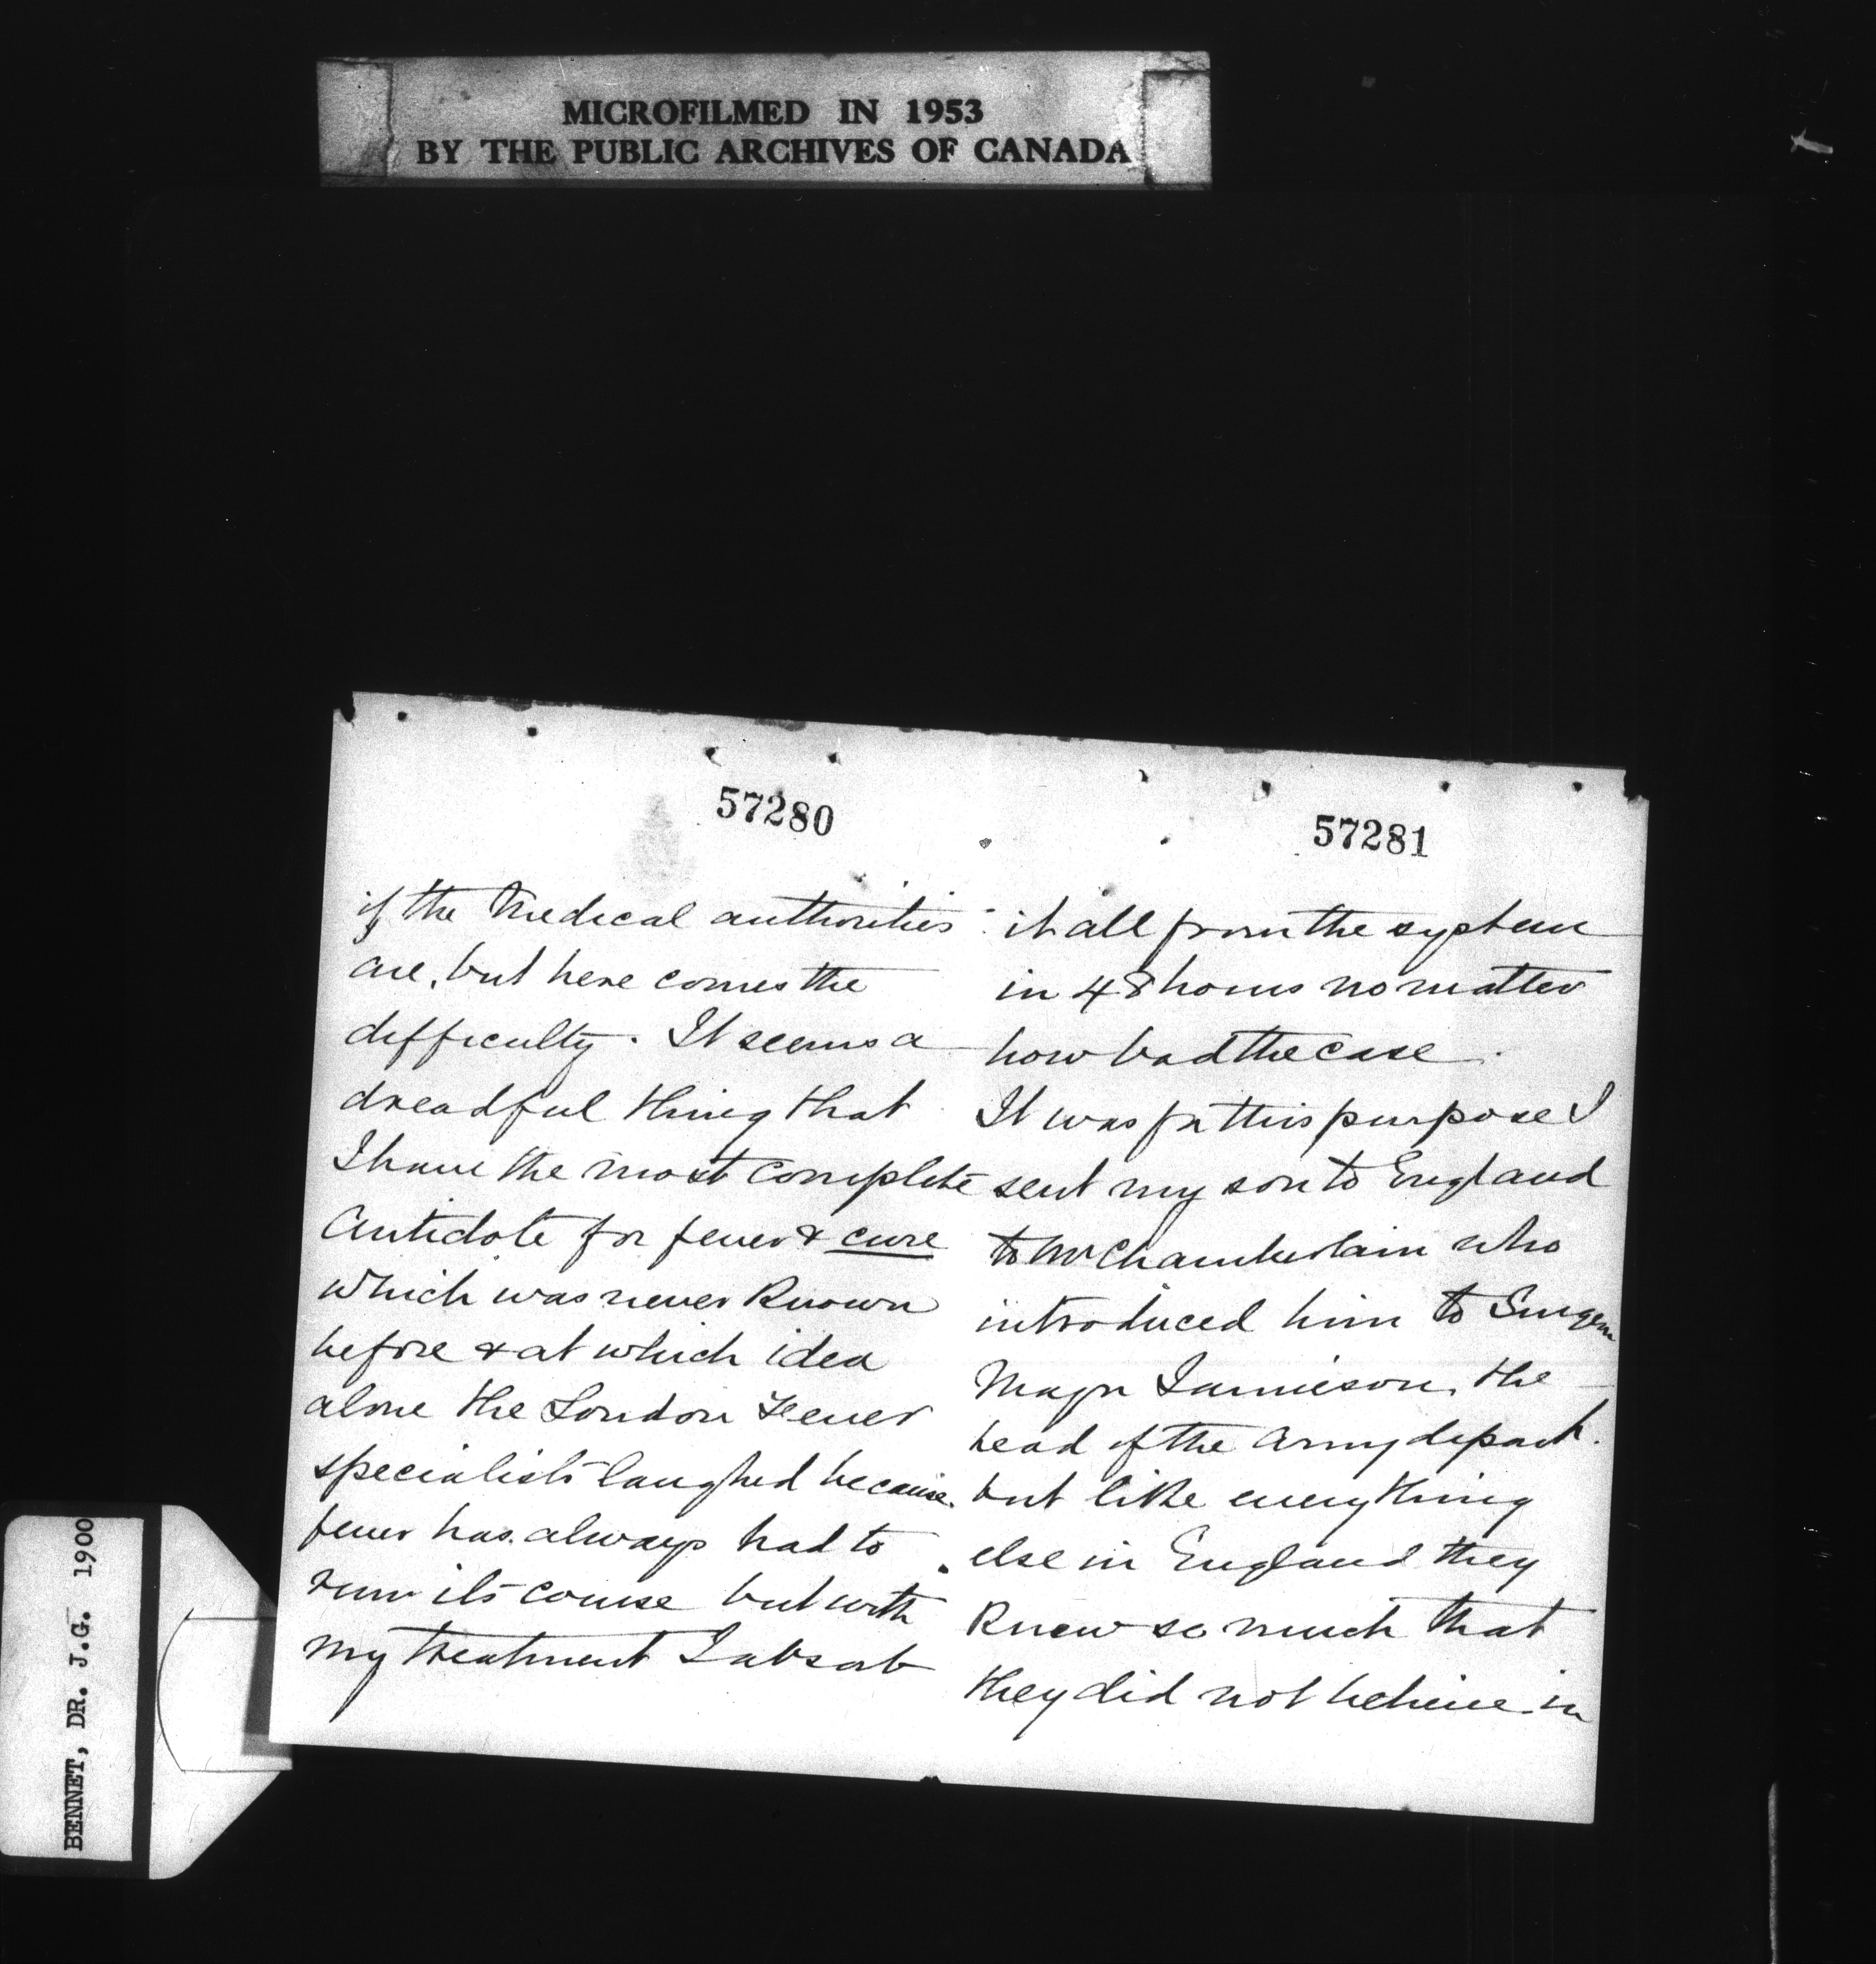 MICROFILMED IN 1953
BY THE PUBLIC ARCHIVES OF CANADA
57280
if the Medical authorities
are, but here comes the
difficulty. It seems a
dreadful thing that
I have the most complete
Antidote for fever & cure
which was never known
before & at which idea
alone the London Fever
specialists laughed because
fever has always had to
run its course but with
my treatment I absorb
57281
it all from the system
in 48 hours no matter
how bad the case.
It was for this purpose I
sent my son to England
to Mr Chamberlain who
introduced him to Surgeon
Major Jamieson, the
head of the Army depart.
but like everything
else in England they
knew so much that
they did not believe in
BENNET, DR. J.G. 1900